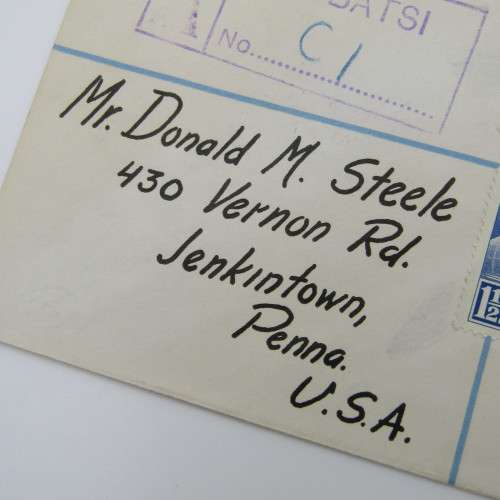 BATSI
No. C1
Mr. Donald M. Steele
430 Vernon Rd.
Jenkintown,
Penna.
U.S.A.